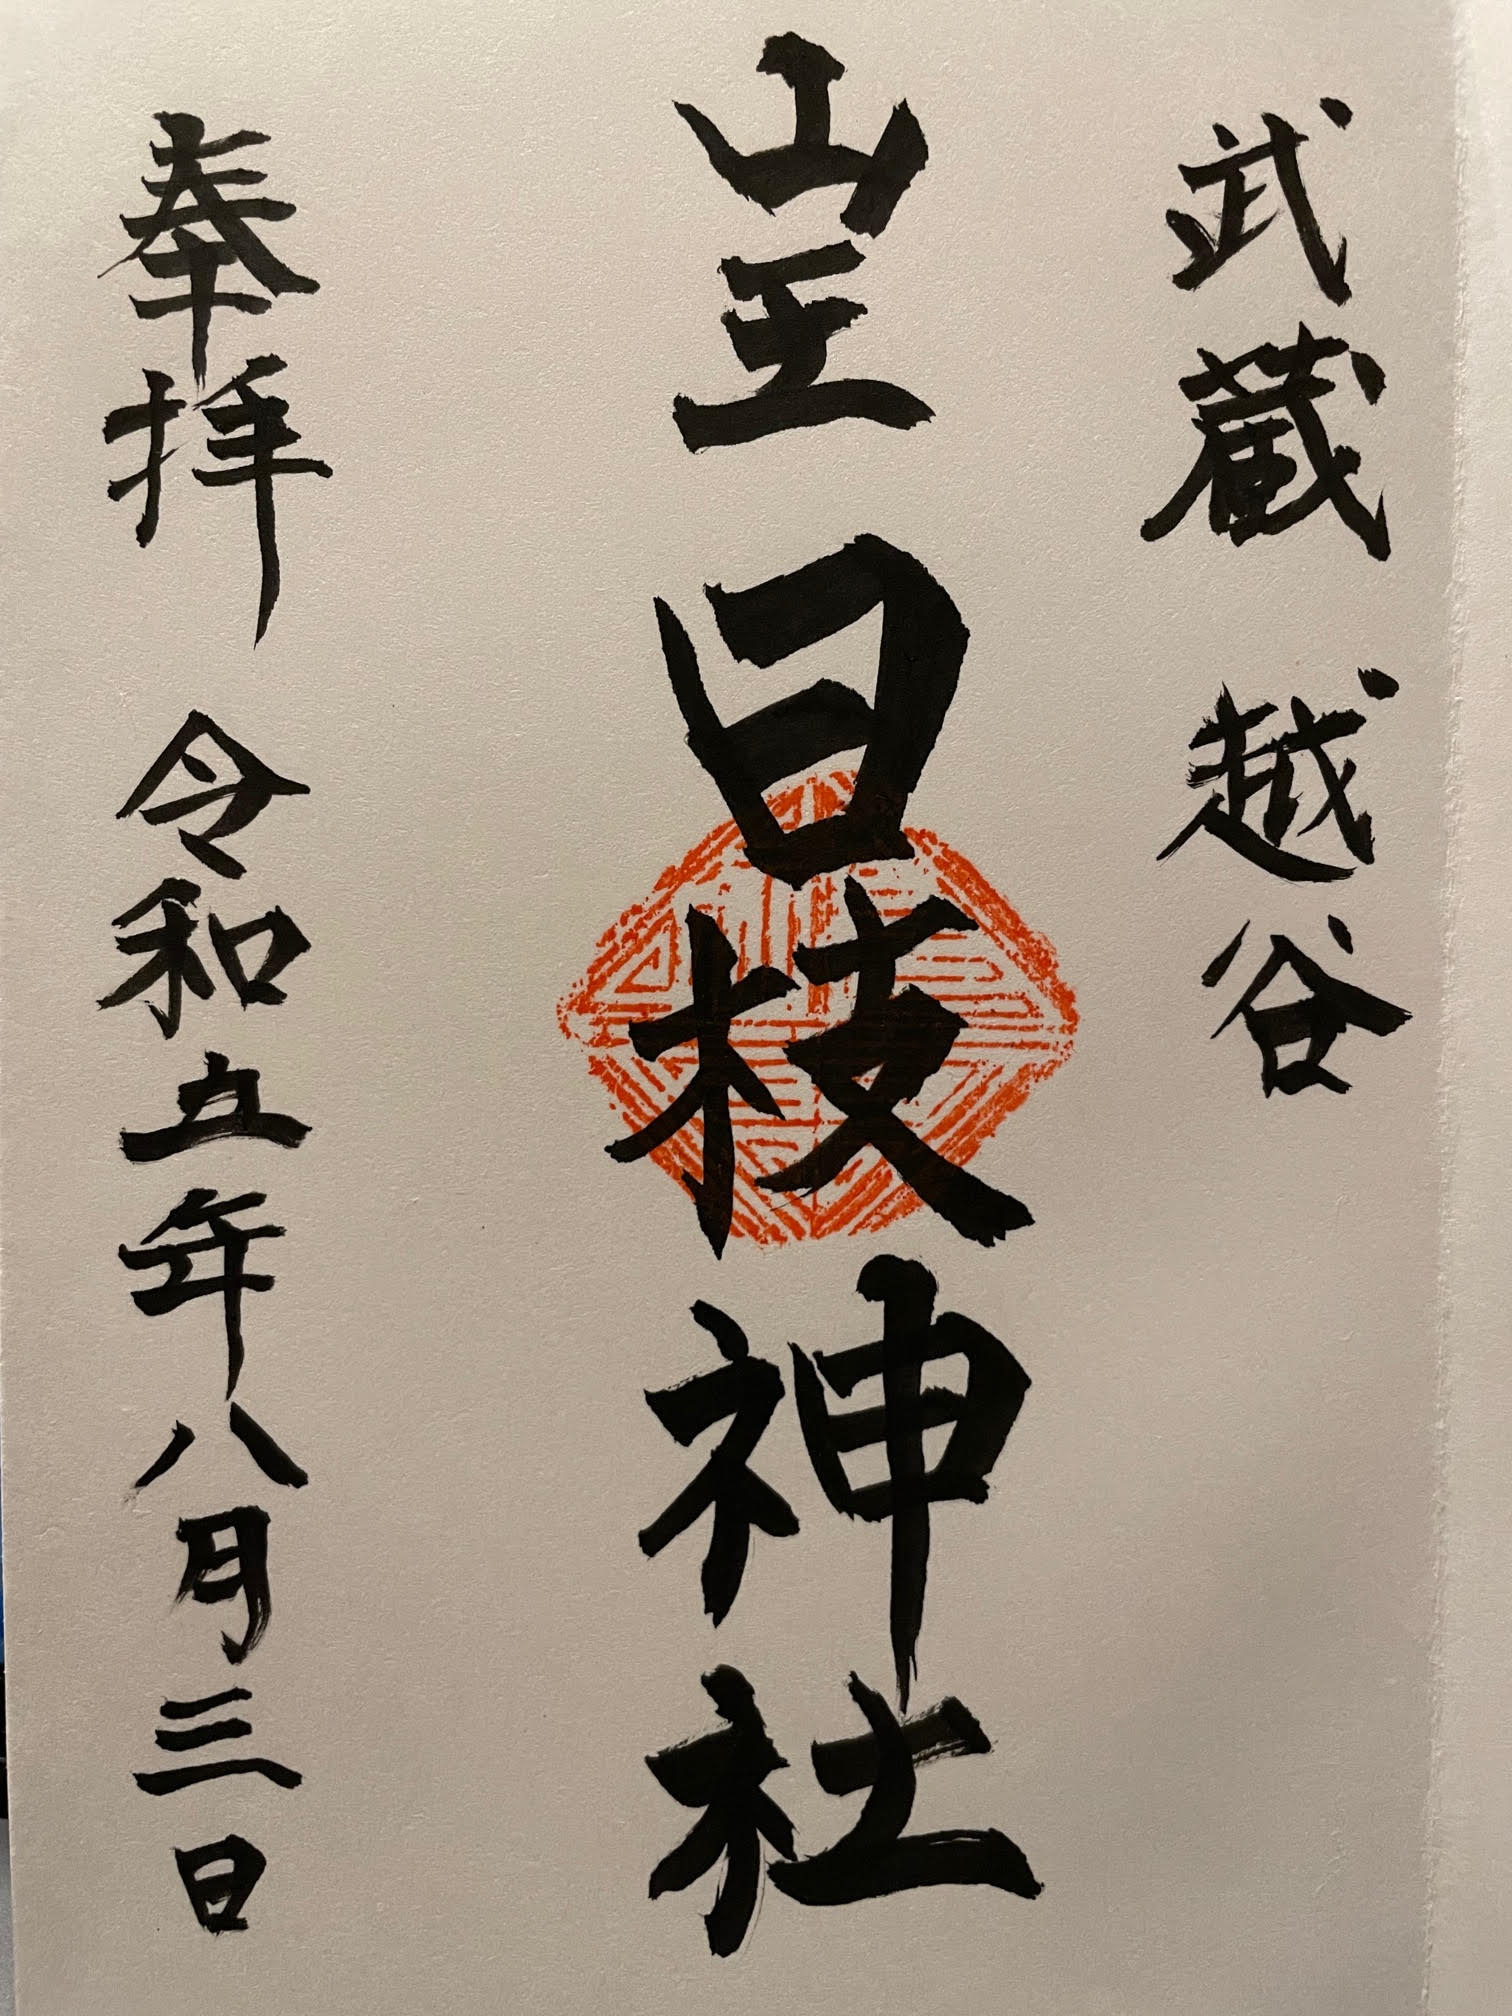 武蔵 越谷
山王 日枝神社
奉拝 令和五年八月三日